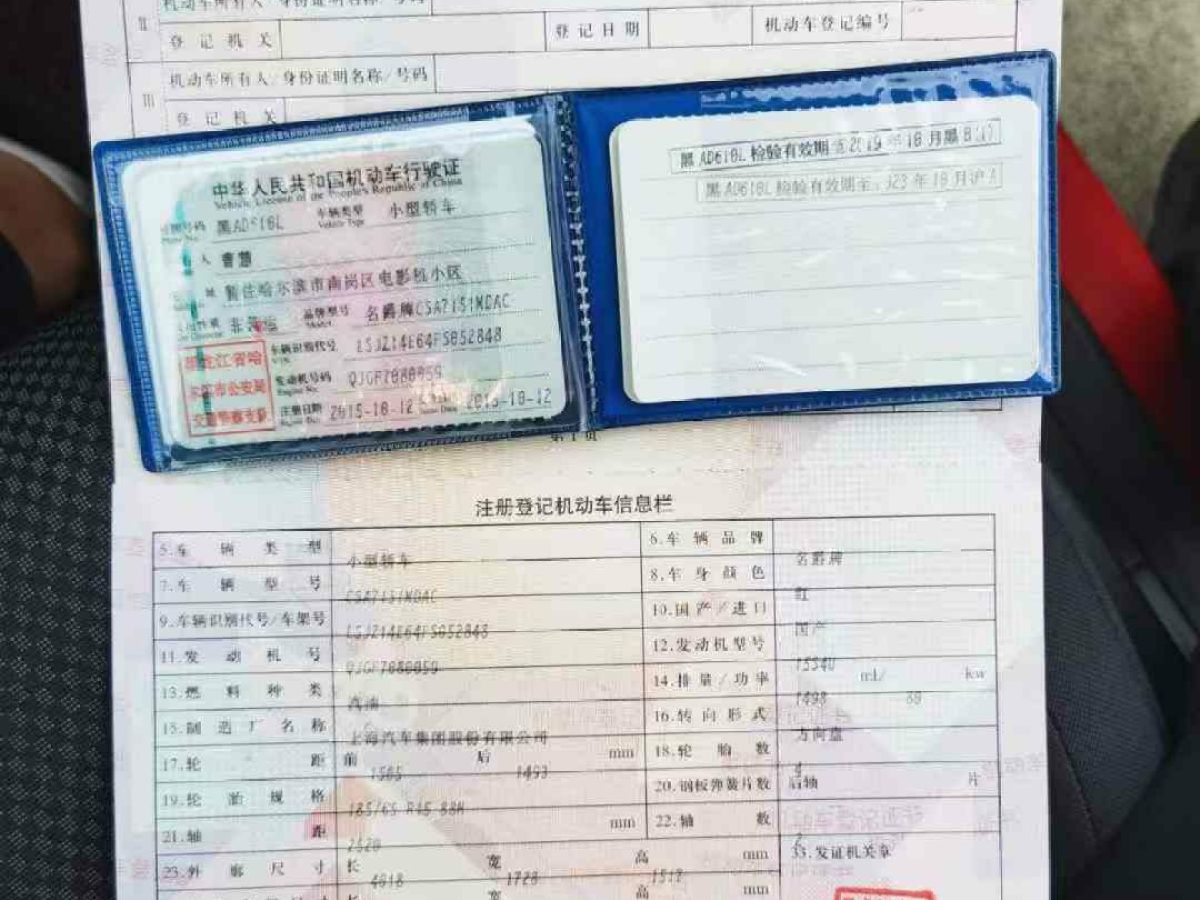 机动车所有人/身份证明名称/号码
Ⅱ 登记机关 登记日期 机动车登记编号
机动车所有人/身份证明名称/号码
Ⅲ 登记机关
中华人民共和国机动车行驶证
Vehicle License of the People's Republic of China
号牌号码 黑AD618L 车辆类型 小型轿车
Plate No. Vehicle Type
人 曹慧
哈尔滨市南岗区电影机小区
品牌型号 名爵牌CSA7151MDAC
Model
车辆识别代号 LSJZ14E64FS052848
VIN
发动机号码 QJGF7080059
Engine No.
注册日期 2015-10-12 2015-10-12
黑龙江省哈
尔滨市公安局
交通警察支队
黑AD618L 检验有效期至2019年10月黑B(1)
黑AD618L检验有效期至 23年10月沪A
第1页
注册登记机动车信息栏
5.车辆类型 小型轿车 6.车辆品牌 名爵牌
7.车辆型号 CSA7151MDAC 8.车身颜色 红
9.车辆识别代号/车架号 LSJZ14E64FS052848 10.国产/进口 国产
11.发动机号 QJGF7080059 12.发动机型号 15S4U
13.燃料种类 汽油 14.排量/功率 1498 ml/ 80 kw
15.制造厂名称 上海汽车集团股份有限公司 16.转向形式 方向盘
17.轮距 前 1505 后 1493 mm 18.轮胎数 4
19.轮胎规格 185/65 R15 88H 20.钢板弹簧片数 后轴 片
21.轴距 2520 mm 22.轴数 2
23.外廓尺寸 长 4018 宽 1728 高 1517 mm 33.发证机关章
宽 高 mm